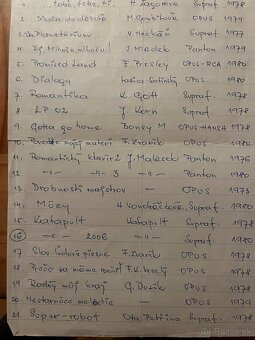 1. tobě, tebe, ti H. Zagorová Supraf. 1978
2. M. Gombitová OPUS 1979
3. Planetárium V. Neckář Supraf. 1977
4. J. Mládek Panton 1979
5. Promised Land E. Presley OPUS-RCA 1980
6. Dialógy OPUS 1980
7. Romantika K. Gott Supraf. 1978
8. LP 02 J. Korn Supraf. 1980
9. Gotta go home Boney M OPUS-HANSA 1978
10. mojej materi F. Zvarik OPUS 1980
11. Romantický klavír 2 J. Malásek Panton 1976
12. -"- 3 -"- Panton 1980
13. Drobnosti majstrov — OPUS 1973
14. Múzy H. Vondráčková, Supraf. 1980
15. Katapult Katapult Supraf. 1978
16. -"- 2006 -"- Supraf. 1980
17. Slov. ľudové piesne F. Zvarik OPUS 1978
18. Prečo sa máme F. K. Veselý OPUS 1978
19. Rodný môj kraj G. Dusík OPUS 1978
20. Nestarnúce melódie — OPUS 1979
21. Super-robot Ota Petřina Supraf. 1978